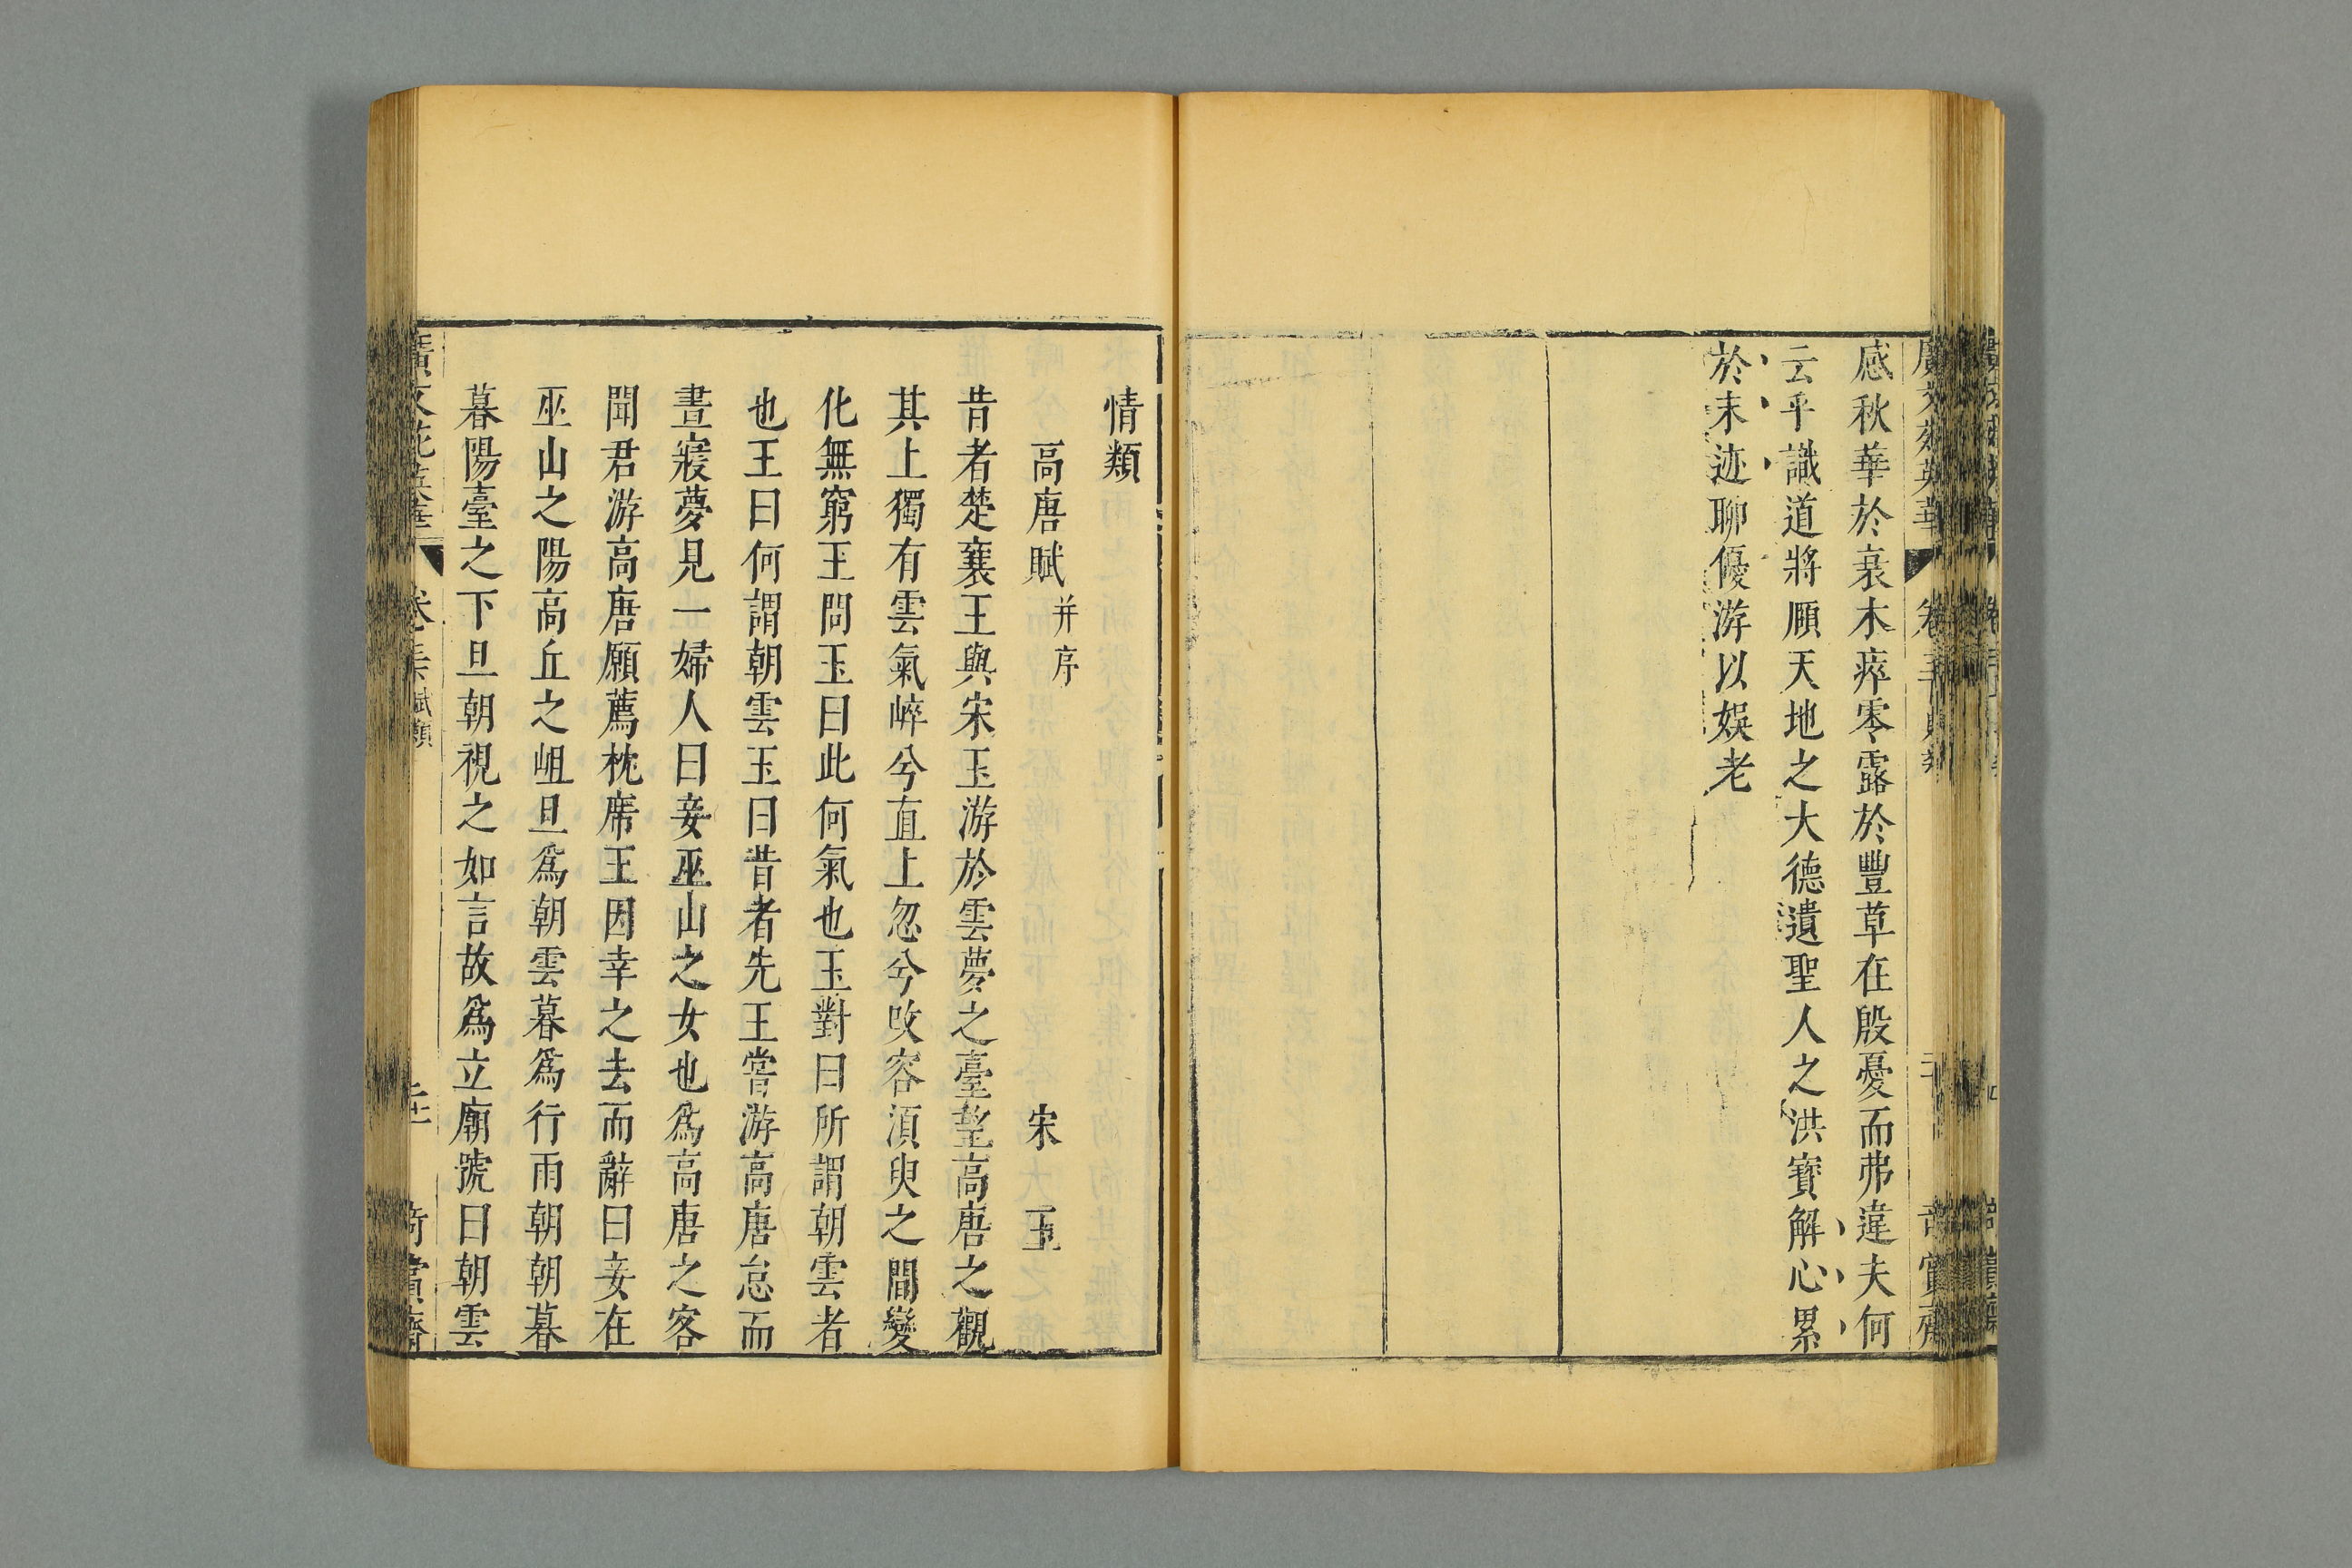 感秋華於衰木瘁零露於豐草在殷憂而弗違夫何
云乎識道將頋天地之大德遺聖人之洪寶解心累
於末迹聊優游以娛老
情類
高唐賦并序 宋玉
昔者楚襄王與宋玉游於雲夢之臺望高唐之觀
其上獨有雲氣崪兮直上忽兮改容須臾之間變
化無窮王問玉曰此何氣也玉對曰所謂朝雲者
也王曰何謂朝雲玉曰昔者先王嘗游高唐怠而
晝寢夢見一婦人曰妾巫山之女也爲高唐之客
聞君游高唐願薦枕席王因幸之去而辭曰妾在
巫山之陽高丘之岨旦爲朝雲暮爲行雨朝朝暮
暮陽臺之下旦朝視之如言故爲立廟號曰朝雲